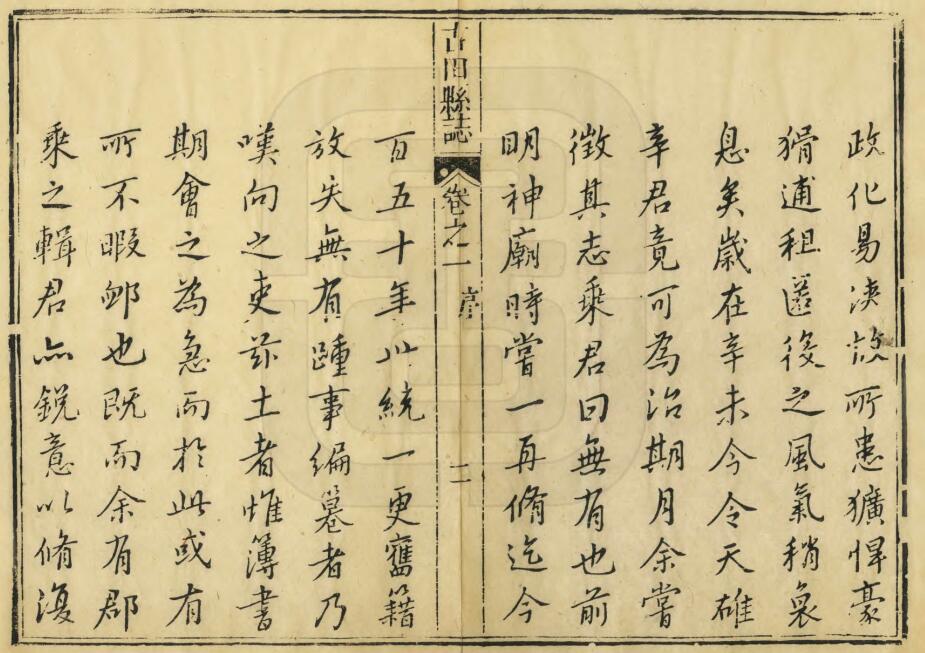 政化易浹故所患獷悍豪
猾逋租匿役之風氣稍衰
息矣歲在辛未今令天雄
辛君竟可為治期月余嘗
徵其志乘君曰無有也前
明神廟時嘗一再脩迄今
古田縣誌
卷之一
序
二
百五十年川統一更舊籍
放失無有踵事編纂者乃
嘆向之吏茲土者惟簿書
期會之為急而於此或有
所不暇卹也既而余有郡
乘之輯君亦銳意以脩復